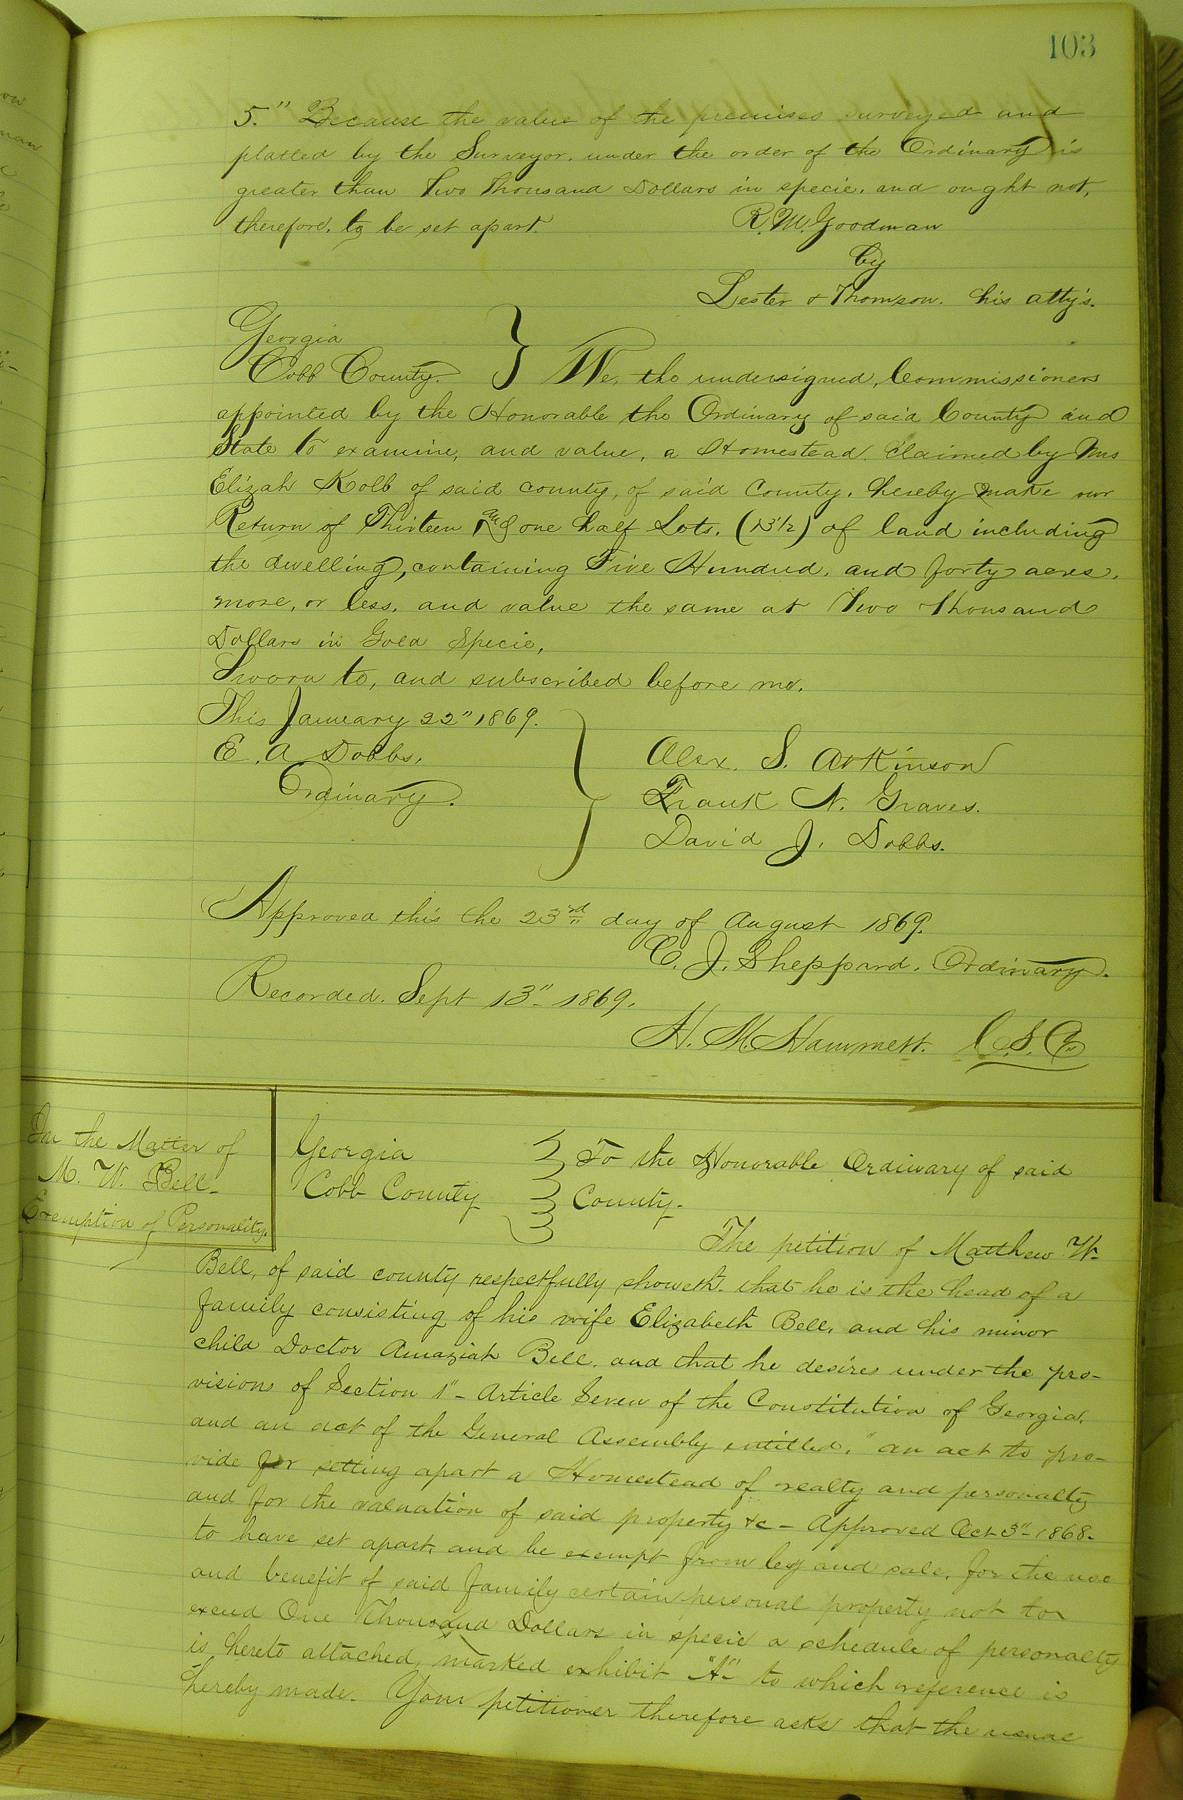 103
5." Because the value of the premises surveyed and
platted by the Surveyor, under the order of the Ordinary is
greater than Two Thousand Dollars in specie, and ought not,
therefore, to be set apart. R. M. Goodman
by
Lester & Thomson, his atty's.
Georgia
Cobb County. } We, the undersigned, Commissioners
appointed by the Honorable the Ordinary of said County and
State to examine, and value, a Homestead, Claimed by Mrs
Elizah Kolb of said county, of said County, hereby make our
Return of Thirteen & one half Lots, (13 1/2) of land including
the dwelling, containing Five Hundred, and forty acres,
more, or less, and value the same at Two Thousand
Dollars in Gold Specie,
Sworn to, and subscribed before me,
This January 22" 1869.
E. A. Dobbs, Alex. S. Atkinson
Ordinary. Frank N. Graves.
David J. Dobbs.
Approved this the 23rd day of August 1869.
C. J. Sheppard, Ordinary.
Recorded, Sept 13" 1869.
H. M. Hammett. C. S. C.
In the Matter of
M. W. Bell-
Exemption of Personality.
Georgia
Cobb County
To the Honorable Ordinary of said
County-
The petition of Matthew W.
Bell, of said county respectfully showeth, that he is the head of a
family consisting of his wife Elizabeth Bell, and his minor
child Doctor Amaziah Bell, and that he desires under the pro-
visions of Section 1"- Article Seven of the Constitution of Georgia,
and an act of the General Assembly entitled, "an act to pro-
vide for setting apart a Homestead of realty and personalty
and for the valuation of said property &c- Approved Oct 3"-1868-
to have set apart, and be exempt from levy and sale, for the use
and benefit of said family certain personal property not to
exceed One Thousand Dollars in specie a schedule of personalty
is hereto attached, marked exhibit "A" to which reference is
hereby made. Your petitioner therefore asks that the usual